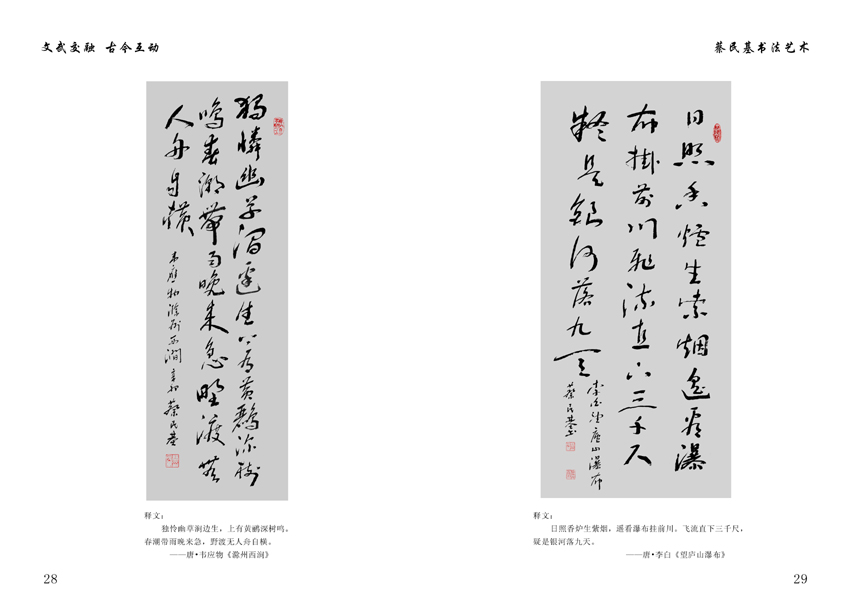 文武交融 古今互动
獨憐幽草澗邊生上有黄鸝深樹
鳴春潮帶雨晚来急野渡無
人舟自横
韋應物滁州西澗 辛卯 蔡民基
释文：
独怜幽草涧边生，上有黄鹂深树鸣。
春潮带雨晚来急，野渡无人舟自横。
——唐•韦应物《滁州西涧》
28
蔡民基书法艺术
日照香爐生紫烟遥看瀑
布掛前川飛流直下三千尺
疑是銀河落九天
李白望廬山瀑布
蔡民基书
释文：
日照香炉生紫烟，遥看瀑布挂前川。飞流直下三千尺，
疑是银河落九天。
——唐•李白《望庐山瀑布》
29